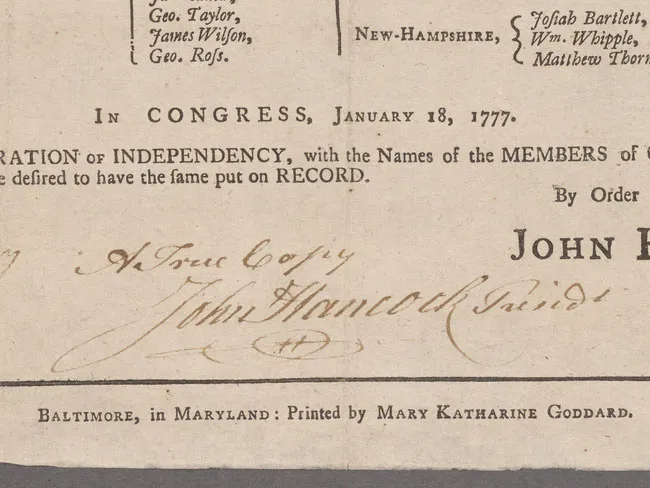 Geo. Taylor,
James Wilſon,
Geo. Roſs.
NEW-HAMPSHIRE,
Joſiah Bartlett,
Wm. Whipple,
Matthew Thorn
IN CONGRESS, JANUARY 18, 1777.
RATION OF INDEPENDENCY, with the Names of the MEMBERS of
e deſired to have the ſame put on RECORD.
By Order
JOHN H
A True Copy
John Hancock Presidt
BALTIMORE, in MARYLAND: Printed by MARY KATHARINE GODDARD.